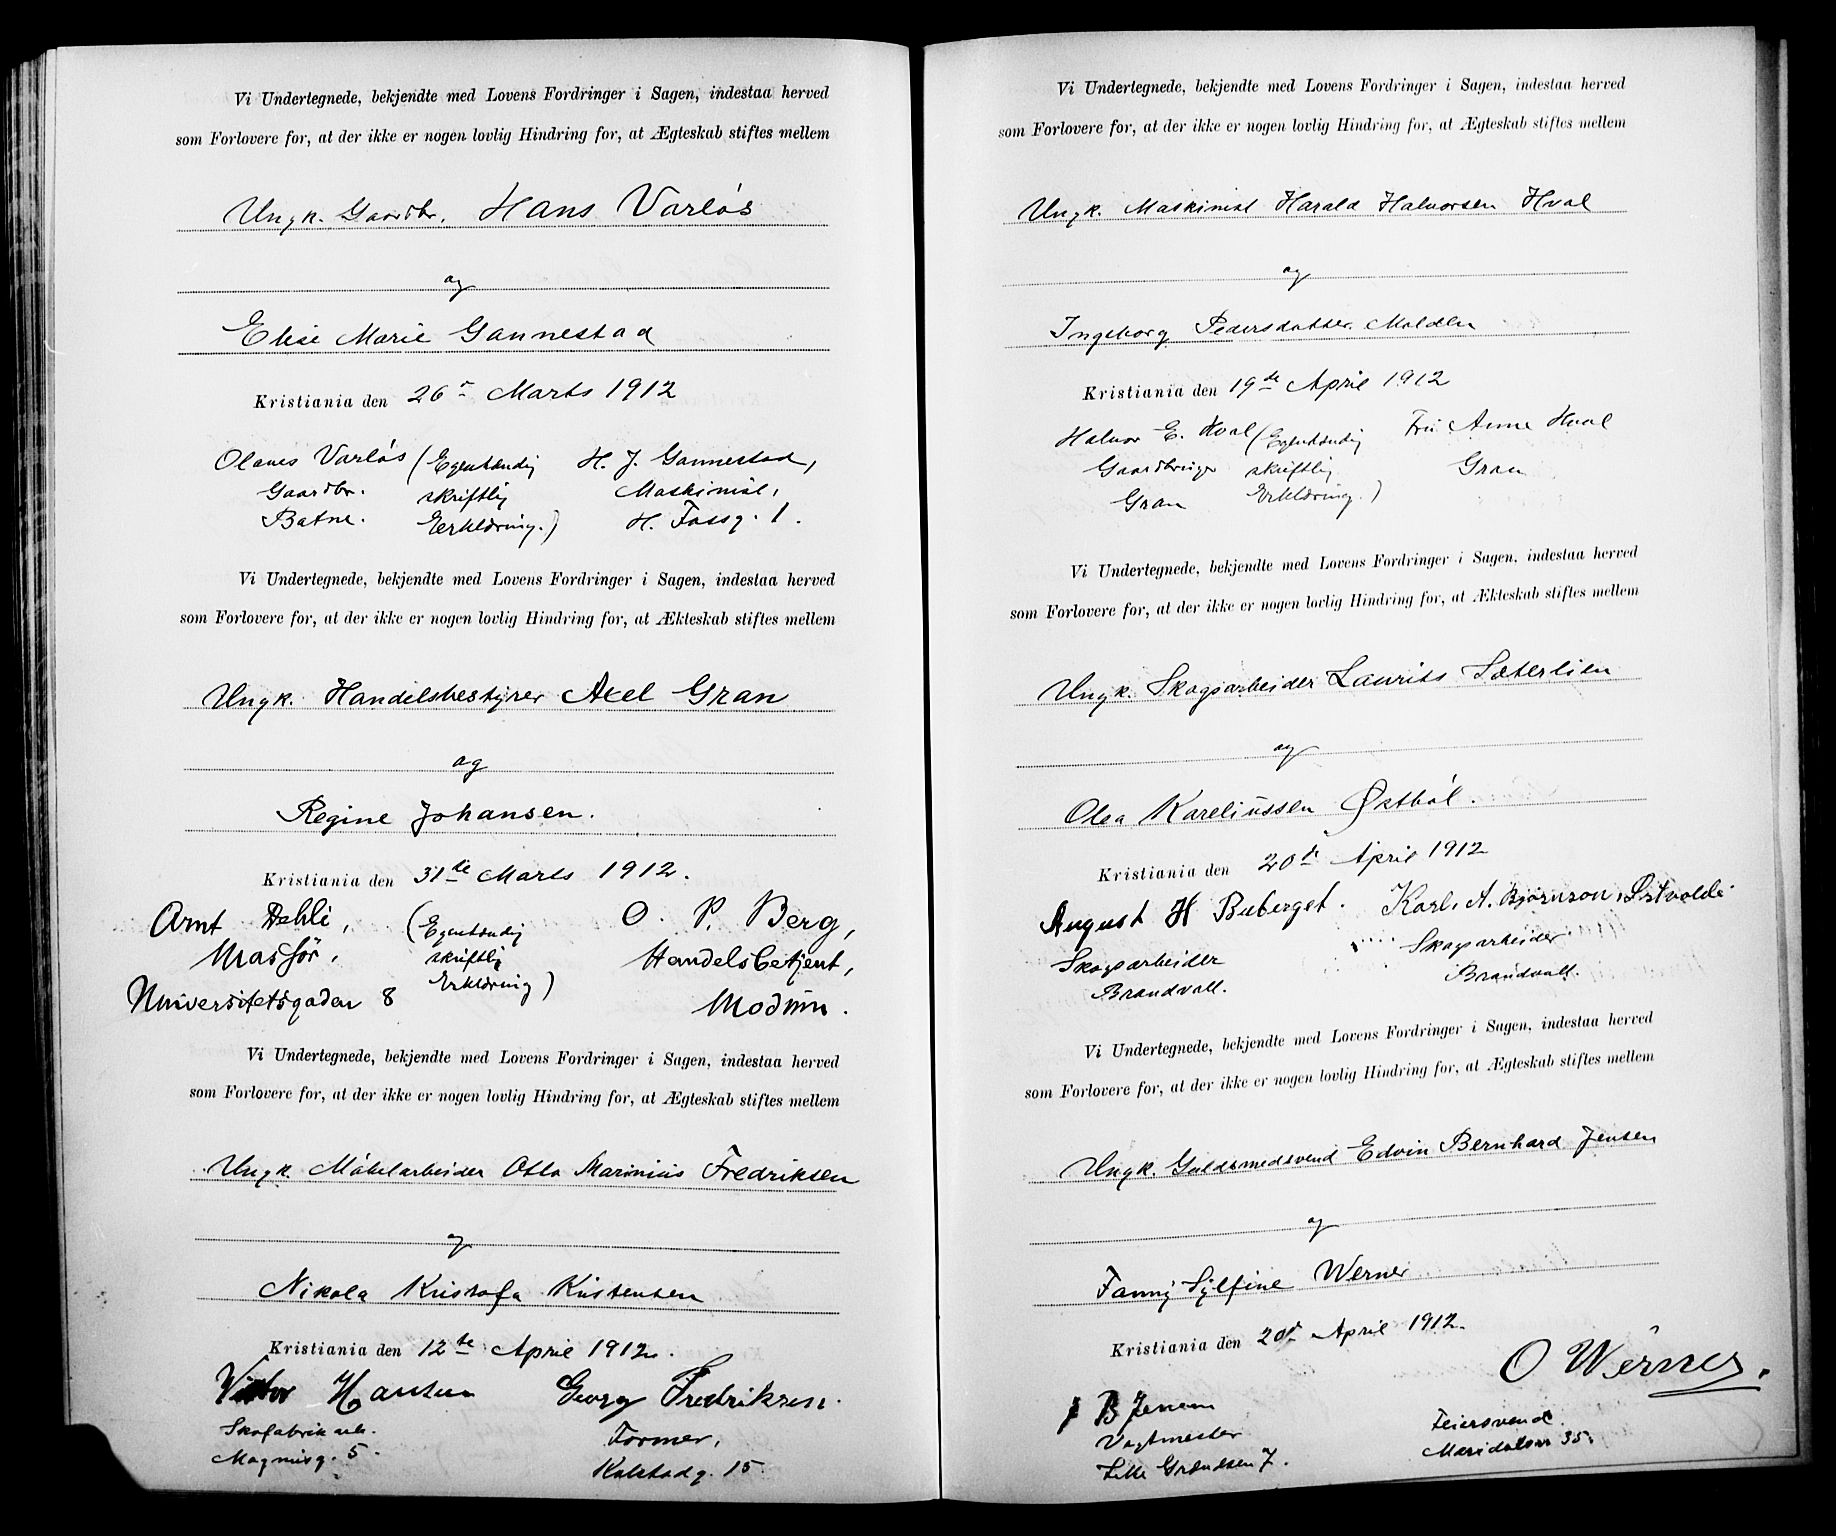 Vi Undertegnede, bekjendte med Lovens Fordringer i Sagen, indestaa herved
som Forlovere for, at der ikke er nogen lovlig Hindring for, at Ægteskab stiftes mellem
Ungk. Gaardbr. Hans Varløs
og
Elise Marie Gannestad
Kristiania den 26de Marts 1912
Olaves Varløs (Egenhændig H. J. Gannestad,
Gaardbr. skriftlig Maskinist,
Batne. Eerklæring.) H. Fossg. 1.
Vi Undertegnede, bekjendte med Lovens Fordringer i Sagen, indestaa herved
som Forlovere for, at der ikke er nogen lovlig Hindring for, at Ækteskab stiftes mellem
Ungk. Handelsbestyrer Axel Gran
og
Regine Johansen.
Kristiania den 31te Marts 1912.
Arnt Dehli, (Egenhændig O. P. Berg,
Massør, skriftlig Handelsbetjent,
Universitetsgaden 8 Erklæring) Modum.
Vi Undertegnede, bekjendte med Lovens Fordringer i Sagen, indestaa herved
som Forlovere for, at der ikke er nogen lovlig Hindring for, at Ægteskab stiftes mellem
Ungk. Møbelarbeider Otto Marinius Fredriksen
og
Nikola Kristofa Kristensen
Kristiania den 12te April 1912.
Viktor Hansen Georg Fredriksen.
Skofabrik arb. Former,
Magnusg. 5. Kalstadg. 15.
Vi Undertegnede, bekjendte med Lovens Fordringer i Sagen, indestaa herved
som Forlovere for, at der ikke er nogen lovlig Hindring for, at Ægteskab stiftes mellem
Ungk. Maskinist Harald Halvorsen Hval
og
Ingeborg Pedersdatter Molden
Kristiania den 19de April 1912
Halvor E. Hval (Egenhændig Fru Anne Hval
Gaardbruger skriftlig Gran
Gran Erklæring.)
Vi Undertegnede, bekjendte med Lovens Fordringer i Sagen, indestaa herved
som Forlovere for, at der ikke er nogen lovlig Hindring for, at Ækteskab stiftes mellem
Ungk. Skogsarbeider Laurits Sæterlien
og
Olea Kareliussen Østbøl.
Kristiania den 20de April 1912
August H Buberget. Karl. A. Bjørnson,
Skogsarbeider Skogsarbeider
Brandvall. Brandvall.
Vi Undertegnede, bekjendte med Lovens Fordringer i Sagen, indestaa herved
som Forlovere for, at der ikke er nogen lovlig Hindring for, at Ægteskab stiftes mellem
Ungk. Guldsmedsvend Edvin Bernhard Jensen
og
Fanny Sylfine Werner
Kristiania den 20de April 1912.
O Werner.
B Jensen
Vagtmester Feiersvend.
Lille Grændsen 7. Maridalsvn 35.